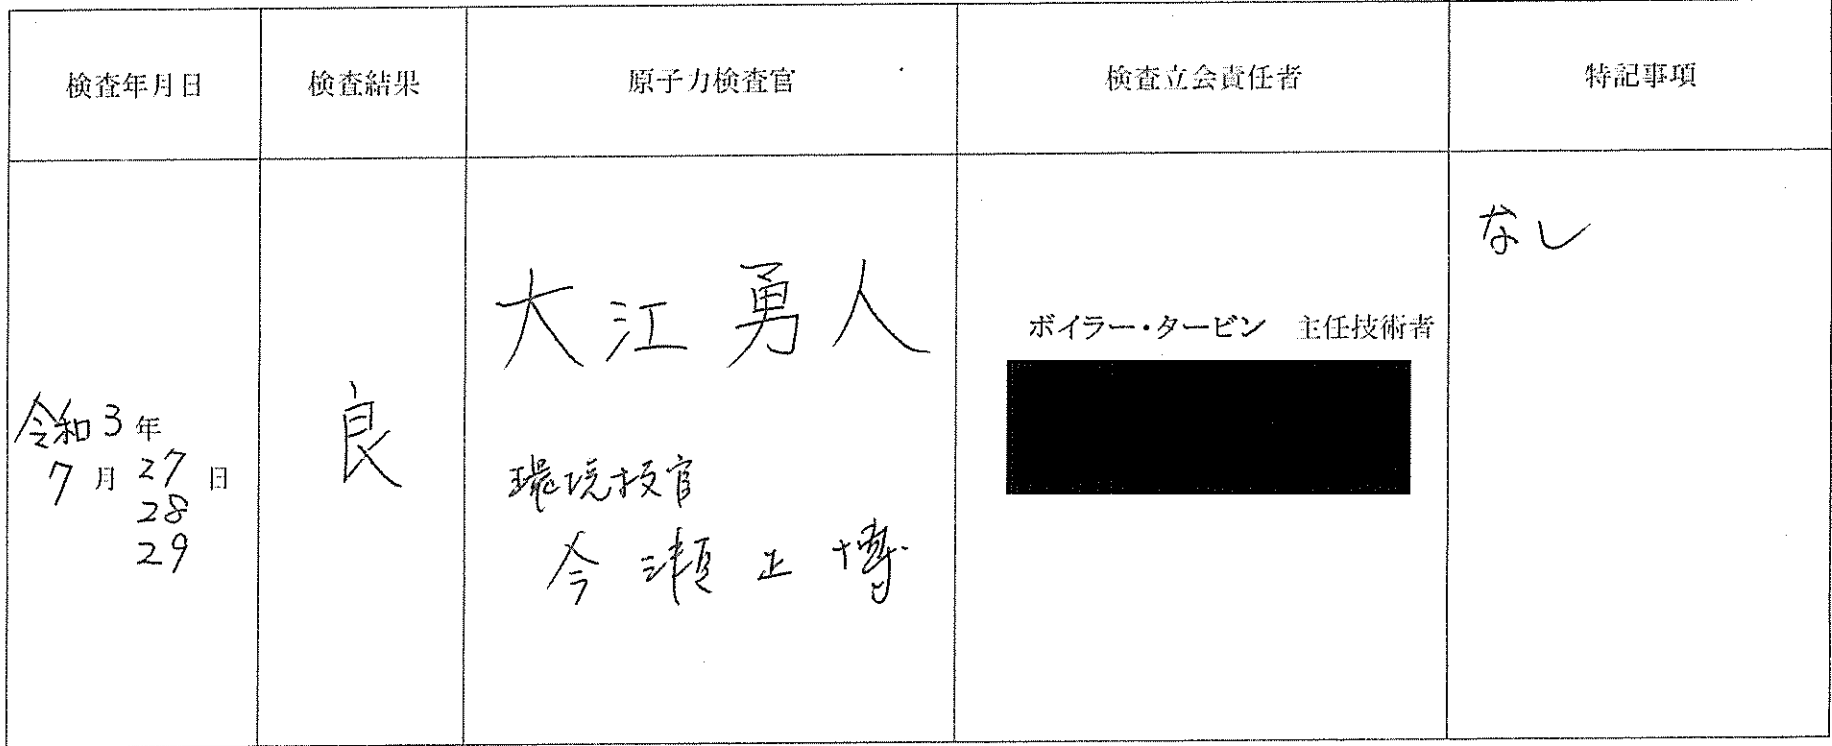 検査年月日
検査結果
原子力検査官
検査立会責任者
特記事項
令和3年
7月27日
28
29
良
大江勇人
環境技官
今瀬正博
ボイラー・タービン 主任技術者
なし